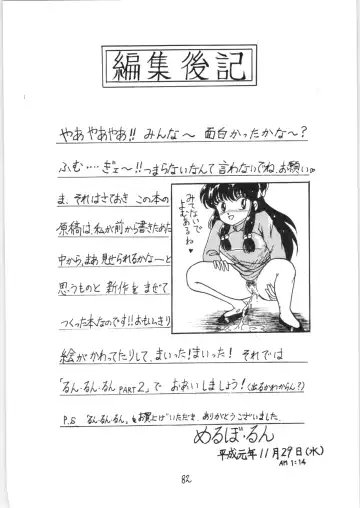 編集後記
やあやあやあ!! みんな〜 面白かったかな〜?
ふむ‥‥ぎェ〜!! つまらないなんて言わないでね、お願い。
ま、それはさておき この本の
原稿は、私が前から書きためた
中から、まあ見せられるかな〜と
思うものと 新作を まぜて
つくった本なのです!! おもいっきり
みてないで
よむあるね♥
絵がかわってたりして、まいった!まいった! それでは
「るん・るん・るん PART2」で おあいしましょう!(出るかわからん?)
P.S 「るん・るん・るん」をお買上げいただき、ありがとうございました。
めるぼ・るん
平成元年11月29日(水)
AM 1:14
82